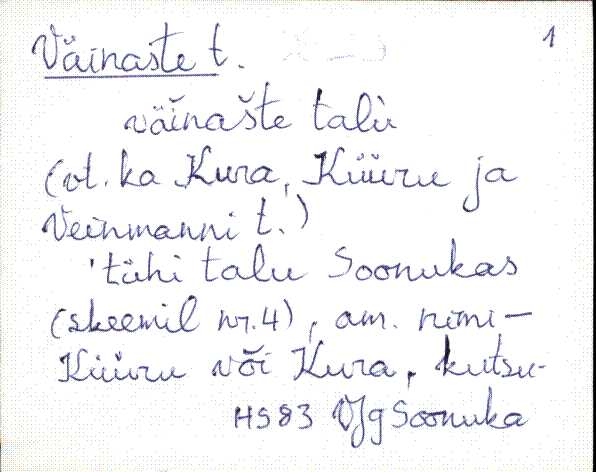 Väinaste t. 1
väinašte talù
(vt. ka Kura, Küüru ja
Veinmanni t.)
'tühi talu Soonukas
(skeemil nr. 4), am. nimi -
Küüru või Kura, kutsu-
HS 83 VJg Soonuka